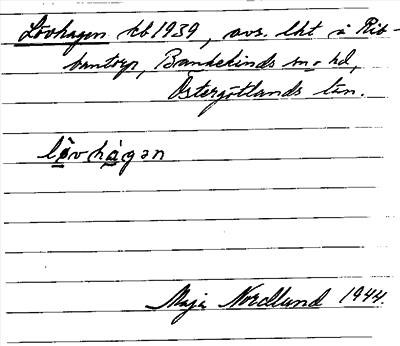 Lövhagen kb 1939, avs. lht å Rib-
bantorp, Bankekinds sn o hd,
Östergötlands län.
lövhagən
Maja Nordlund 1944.